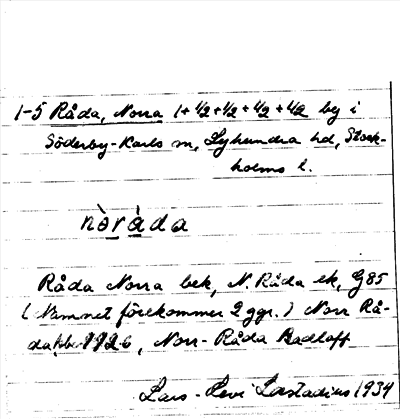 1-5 Råda, Norra 1+1/2+1/2+1/2+1/2 by i
Söderby-Karls sn, Lyhundra hd, Stock-
holms l.
nò̱rà̱da
Råda Norra bek, N. Råda ek, G85
(Namnet förekommer 2 ggr.) Norr Rå-
da 1926, Norr-Råda Radloff
Lars-Levi Læstadius 1934